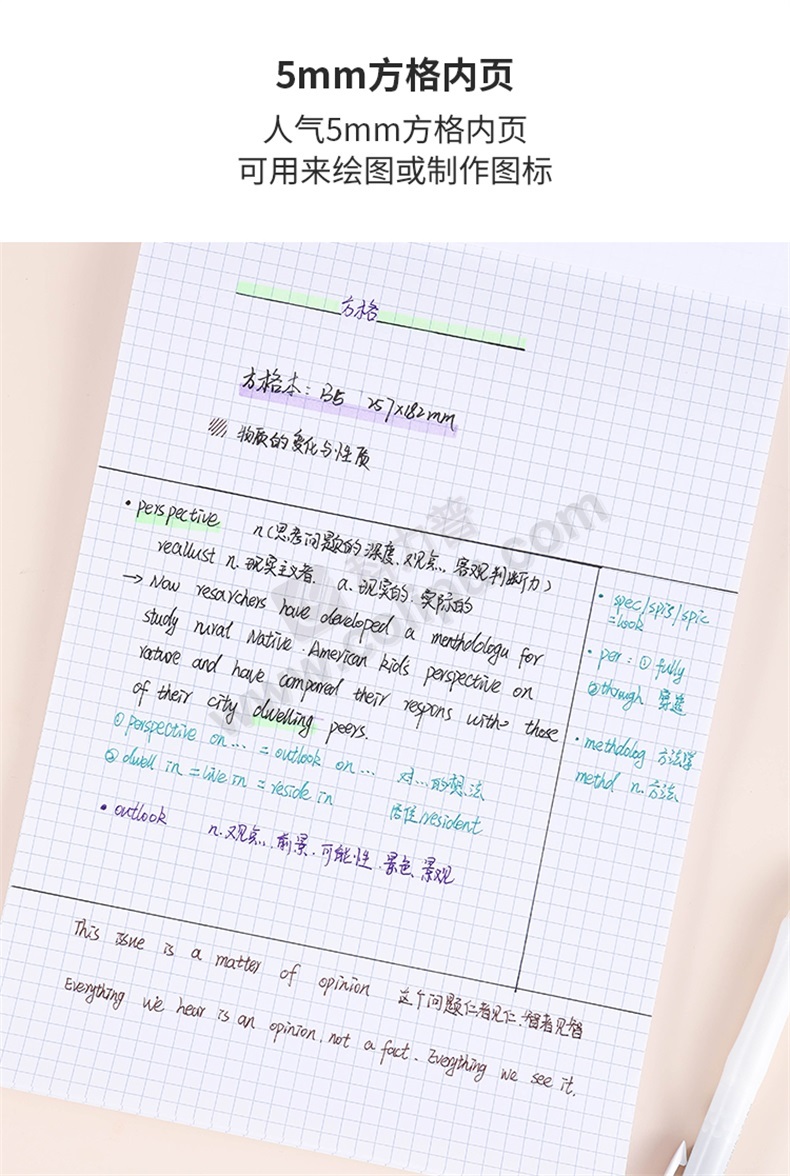 5mm方格内页
人气5mm方格内页
可用来绘图或制作图标
方格
方格本：B5 257×182mm
物质的变化与性质
• perspective n(思考问题的深度、观点、客观判断力)
reallust n.现实主义者. a.现实的.实际的
→ Now resarchers have developed a menthdologu for
study rural Native.American kid's perspective on
nature and have compared their respons with those
of their city dwelling peers.
① perspective on... = outlook on... 对...的想法
② dwell in = live in = reside in 居住/resident
• outlook n.观点.前景.可能性.景色、景观
• spec/spis/spic
=look
• per: ① fully
② through 穿透
• methdolog 方法学
methd n.方法
This issue is a matter of opinion 这个问题仁者见仁.智者见智
Everything we hear is an opinion, not a fact. Everything we see it,
www.colipu.com